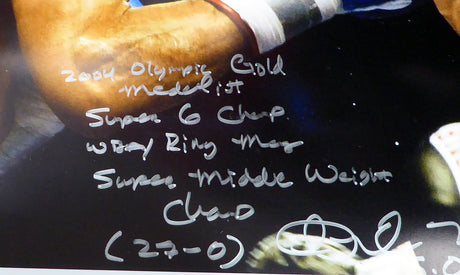 2004 Olympic Gold
Medalist
Super 6 Champ
WBA/ Ring Mag
Super Middle Weight
Champ
(27-0)